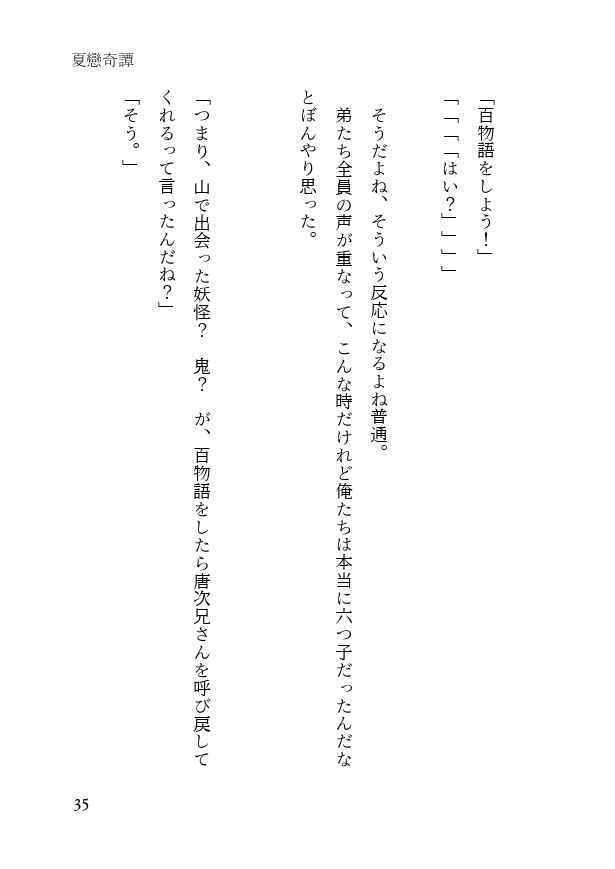 夏戀奇譚
「百物語をしよう！」
「「「「はい？」」」」
そうだよね、そういう反応になるよね普通。
弟たち全員の声が重なって、こんな時だけれど俺たちは本当に六つ子だったんだな
とぼんやり思った。
「つまり、山で出会った妖怪？　鬼？　が、百物語をしたら唐次兄さんを呼び戻して
くれるって言ったんだね？」
「そう。」
35